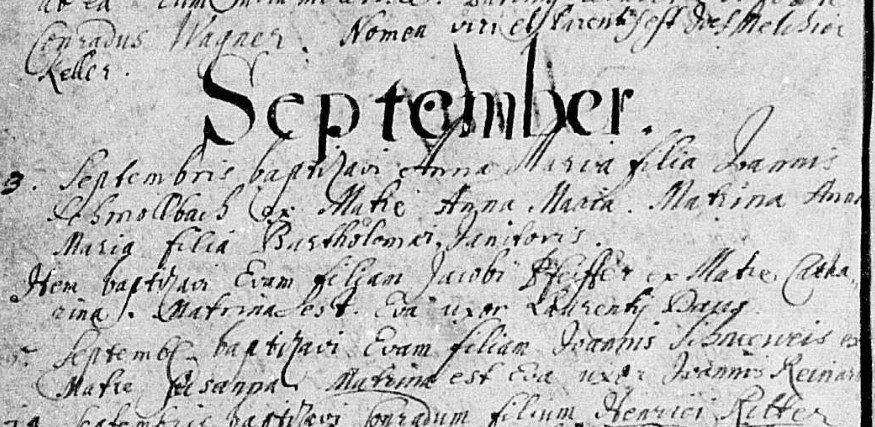 Conradus Wagner. Nomen viri et Parentis est Joes Melchior
Keller.
September.
3. Septembris baptizavi Anna Maria filia Joannis
Schmollbach ex Matre Anna Maria. Matrina Anna
Maria filia Bartholomaei Janitoris.
Item baptizavi Evam filiam Jacobi Pfeiffer ex Matre Catha-
rina. Matrina est. Eva uxor Laurentij Daus
Septemb. baptizavi Evam filiam Joannis Schneeweis ex
Matre Susanna. Matrina est Eva uxor Joannis Reinard
Septembris baptizavi Conradum filium Henrici Ritter